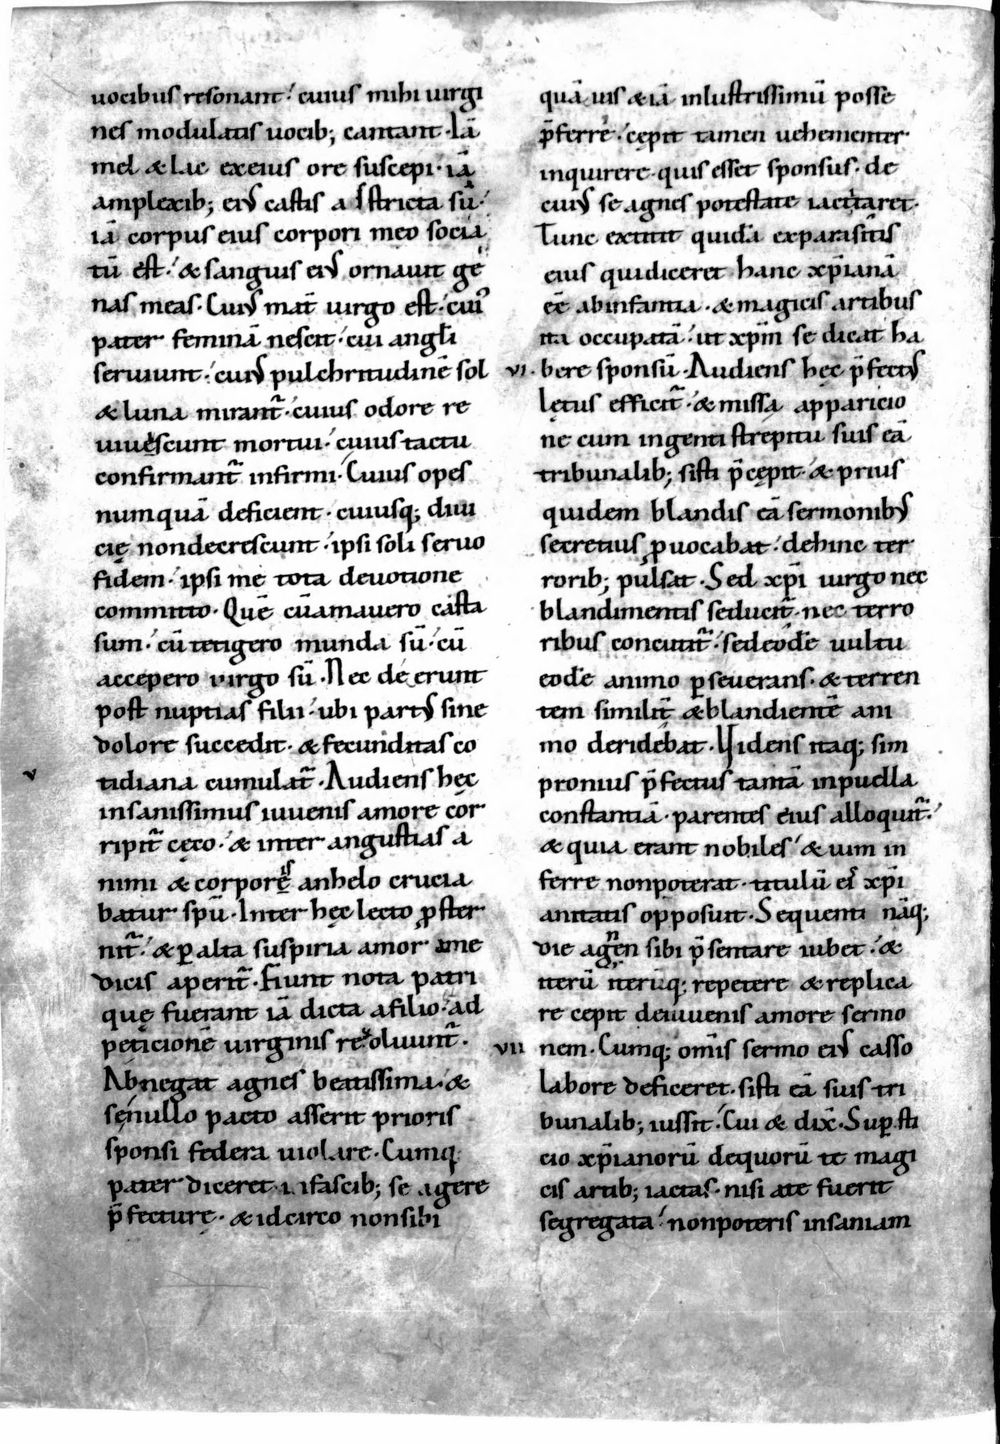 uocibus resonant. cuius mihi uirgi
nes modulatis uocib; cantant. Iā
mel & lac ex eius ore suscepi. iā
amplexib; ei᷒ castis astricta sū.
iā corpus eius corpori meo socia
tū est. & sanguis ei᷒ ornauit ge
nas meas. Cui᷒ mat̄ uirgo est. cui᷒
pater feminā nescit. cui angłi
seruiunt. cui᷒ pulchritudinē sol
& luna mirant̄. cuius odore re
uiuescunt mortui. cuius tactu
confirmant̄ infirmi. Cuius opes
numquā deficient. cuiusq; diui
cię non decrescunt. ipsi soli seruo
fidem. ipsi me tota deuotione
committo. Quē cū amauero casta
sum. cū tetigero munda sū. cū
accepero uirgo sū. Nec deerunt
post nuptias filii. ubi part᷒ sine
dolore succedit. & fecunditas co
tidiana cumulat̄. Audiens hęc
v
insanissimus iuuenis amore cor
ripit̄ cęco. & inter angustias a
nimi & corporis anhelo crucia
batur spū. Inter hęc lecto p̱ster
nit̄. & ꝑ alta suspiria amor a me
dicis aperit̄. Fiunt nota patri
quę fuerant iā dicta a filio. ad
peticionē uirginis reuoluunt̄.
Abnegat agnes beatissima. &
se nullo pacto asserit prioris
sponsi federa uiolare. Cumq
pater diceret. in fascib; se agere
p̄fecturę. & idcirco non sibi
quāuis & iā inlustrissimū posse
p̄ferre. cępit tamen uehementer
inquirere. quis esset sponsus. de
cui᷒ se agnes potestate iactaret.
Tunc extitit quidā ex parasitis
eius qui diceret hanc xp̄ianā
eē ab infantia. & magicis artibus
ita occupatā. ut xp̄m se dicat ha
vi. bere sponsū. Audiens hęc p̄fect᷒
lętus efficit̄. & missa apparicio
ne cum ingenti strepitu suis eā
tribunalib; sisti p̄cępit. & prius
quidem blandis eā sermonib᷒
secretius ꝓuocabat. dehinc ter
rorib; pulsat. Sed xp̄i uirgo nec
blandimentis seducit̄. nec terro
ribus concutit̄. sed eodē uultu
eodē animo ꝑseuerans. & terren
tem similit̄ & blandientē ani
mo deridebat. Videns itaq; sim
pronius p̄fectus tantā in puella
constantiā. parentes eius alloquit̄.
& quia erant nobiles. & uim in
ferre non poterat. titulū ei xp̄i
anitatis opposuit. Sequenti nāq;
die agnen sibi p̄sentare iubet. &
iterū iterūq; repetere & replica
re cepit de iuuenis amore sermo
vii nem. Cumq; om̄is sermo ei᷒ casso
labore deficeret. sisti eā suis tri
bunalib; iussit. Cui & dix̄. Suꝑsti
cio xp̄ianorū de quorū te magi
cis artib; iactas. nisi a te fuerit
segregata. non poteris insaniam